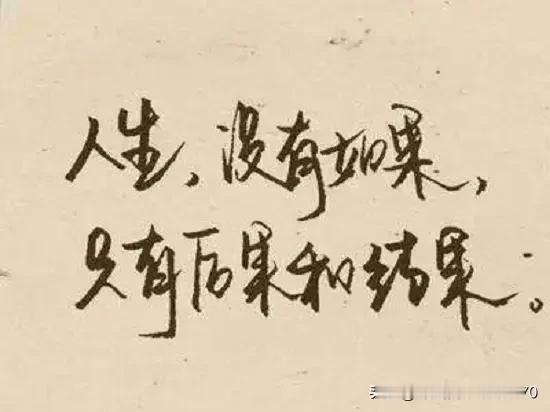 人生，没有如果，
只有后果和结果。
70